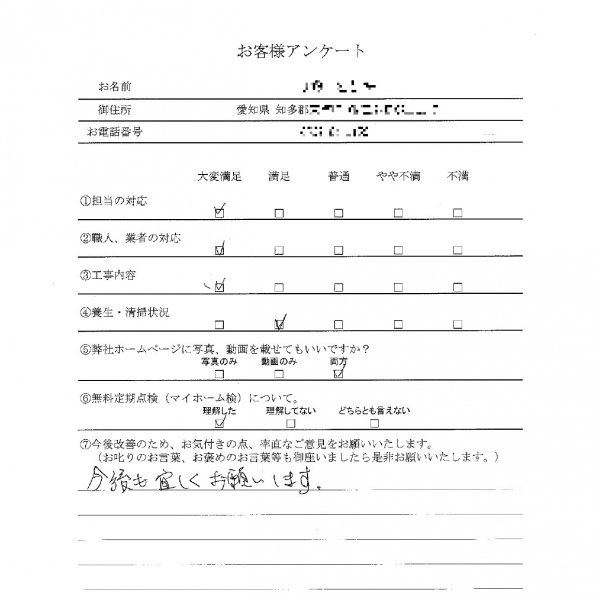 お客様アンケート
お名前
御住所 愛知県 知多郡
お電話番号
大変満足 満足 普通 やや不満 不満
①担当の対応
②職人、業者の対応
③工事内容
④養生・清掃状況
⑤弊社ホームページに写真、動画を載せてもいいですか？
写真のみ 動画のみ 両方
⑥無料定期点検（マイホーム検）について。
理解した 理解してない どちらとも言えない
⑦今後改善のため、お気付きの点、率直なご意見をお願いいたします。
（お叱りのお言葉、お褒めのお言葉等も御座いましたら是非お願いいたします。）
今後も宜しくお願いします。